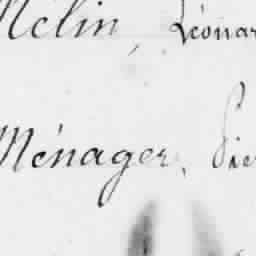 Mélin, Léonar
Ménager, Pier